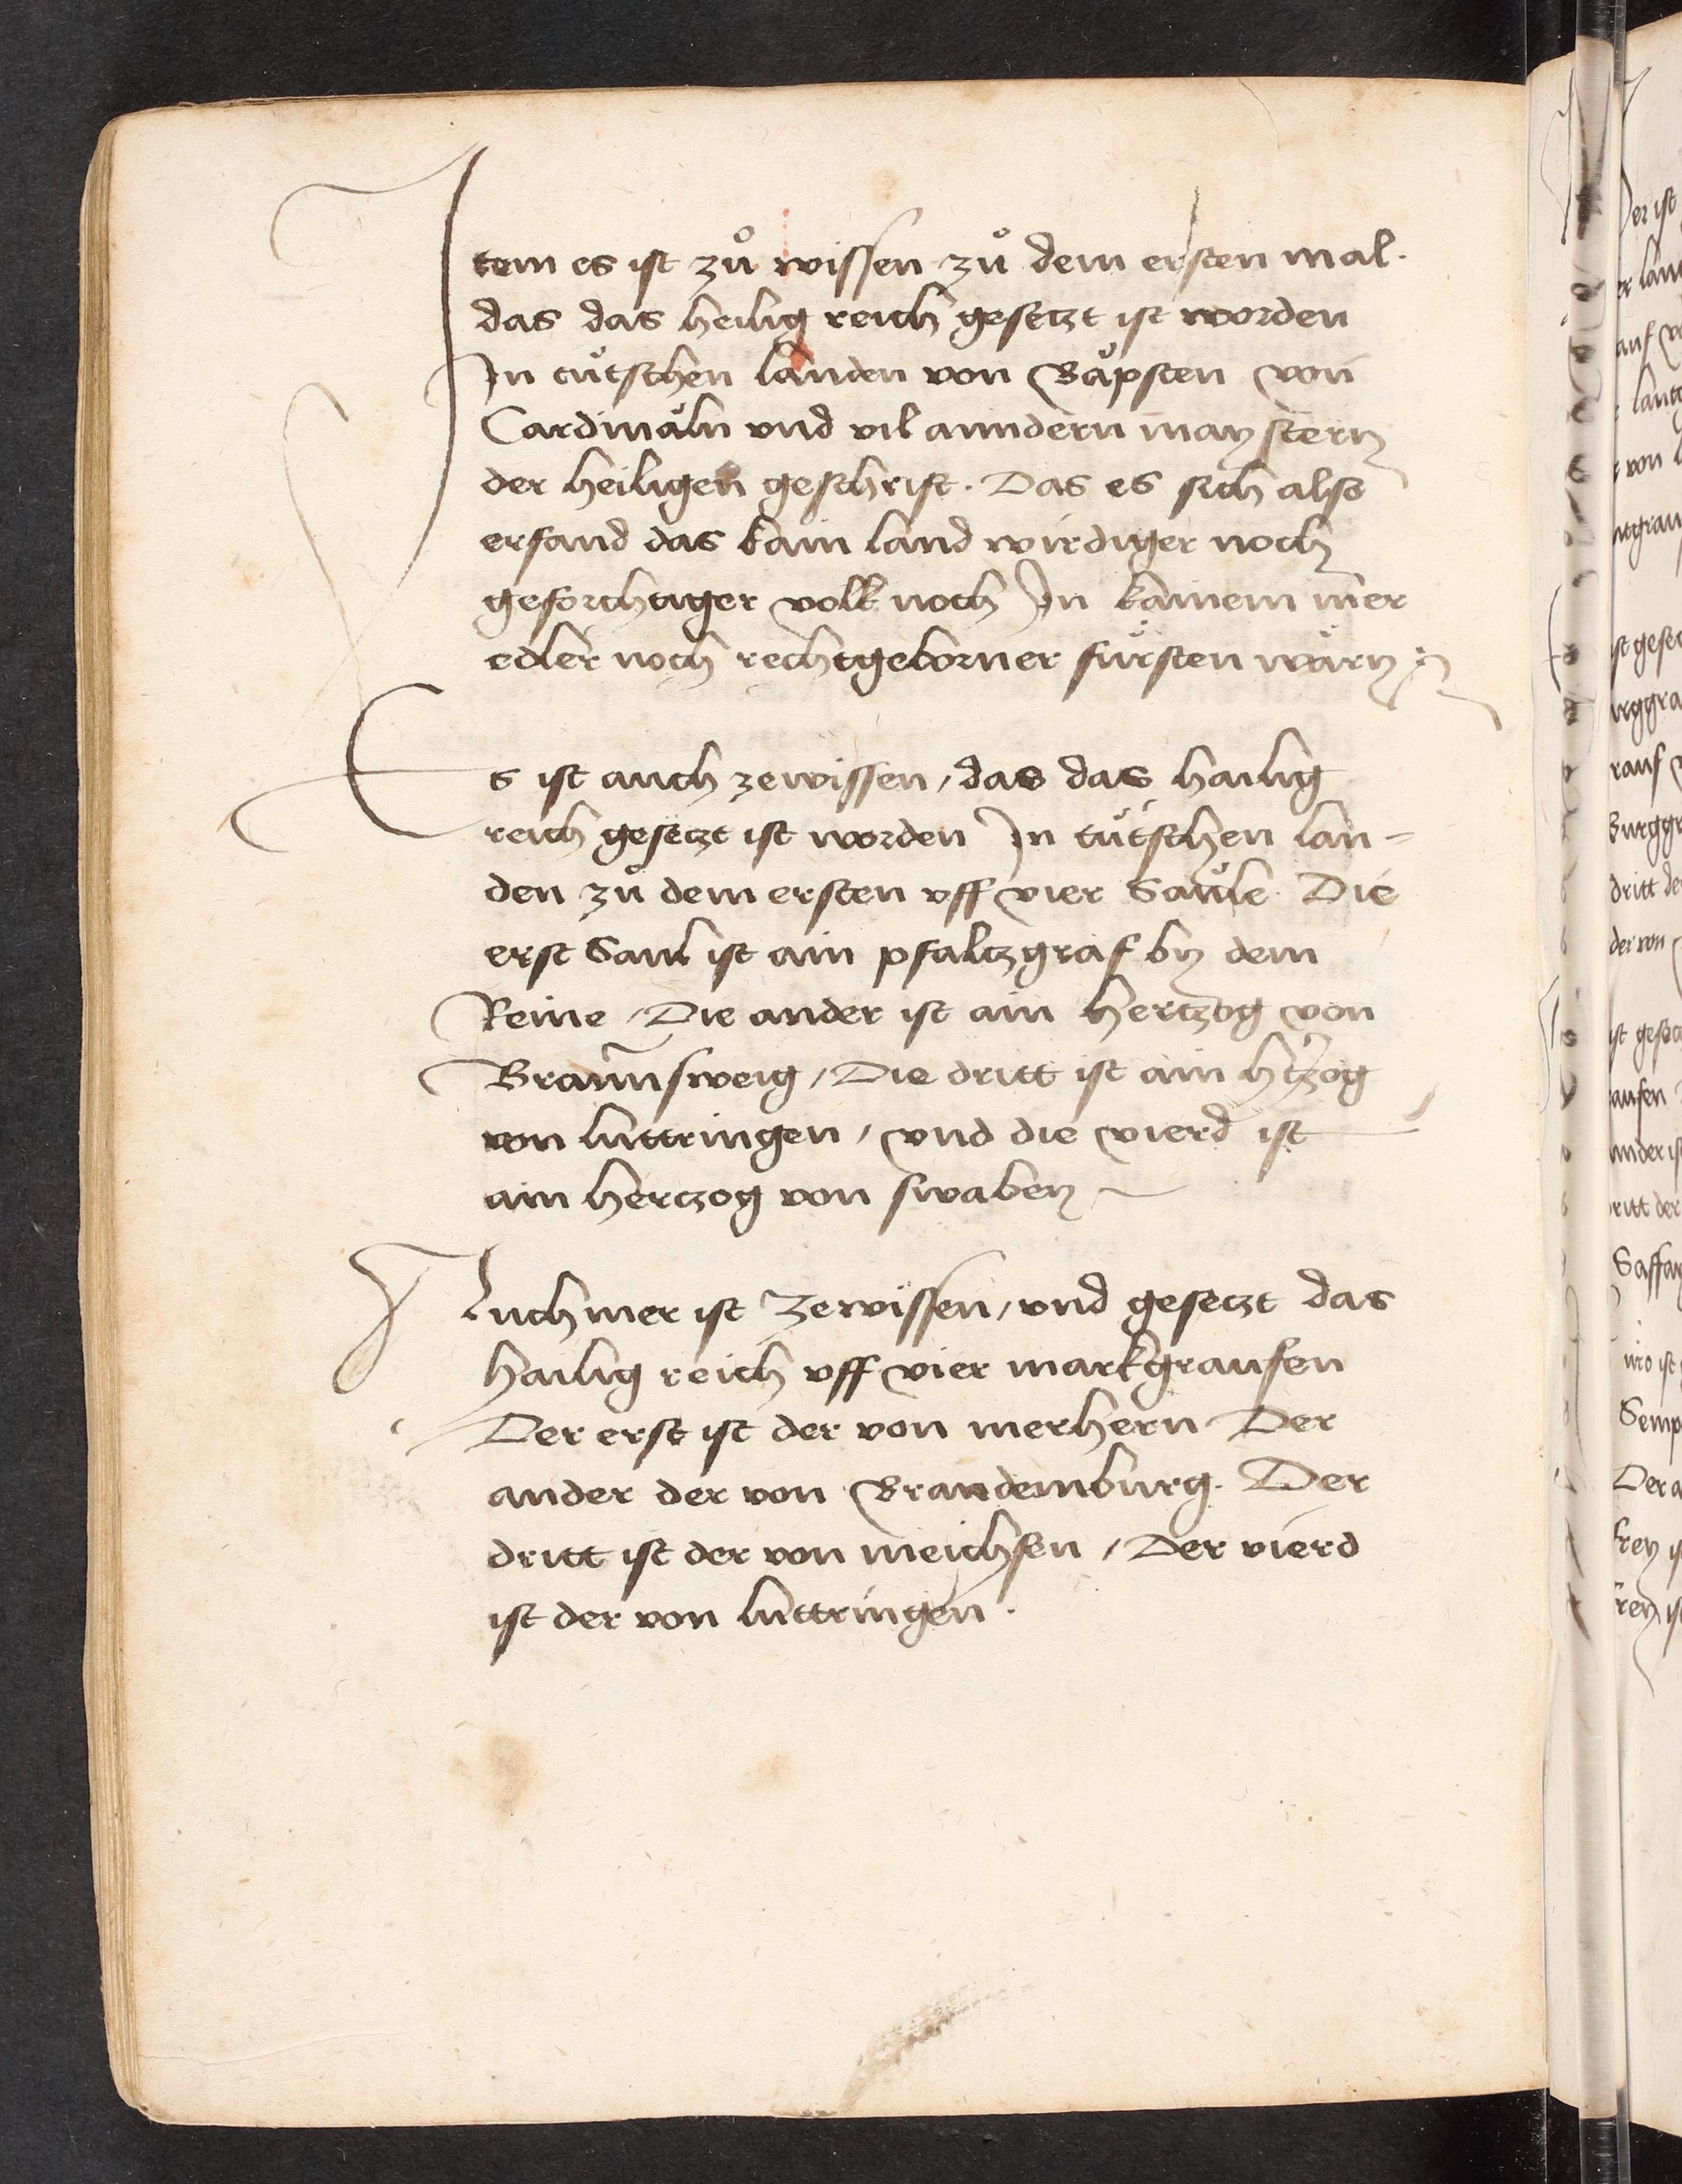 Item es ist zů wissen zů dem ersten mal.
das das heilig reich gesetzt ist worden
In tütschen landen von Bäpsten von
Cardinäln vnd vil anndern maystern
der heiligen geschrift. Das es sich also
erfand das kain land wirdiger noch
geforchtiger volk noch In kainem mer
edler noch rechtgeborner fürsten wärn
Es ist auch zewissen / das das hailig
reich gesetzt ist worden In tütschen lan=
den zů dem ersten vff vier Saule Die
erst Saul ist ain pfaltzgraf by dem
Reine / Die ander ist ain hertzog von
Braunsweig / Die dritt ist ain htzog
von luttringen / vnd die vierd ist
ain hertzog von swaben
Auch mer ist zewissen / vnd gesetzt das
hailig reich vff vier markgraufen
Der erst ist der von merhern Der
ander der von Brandemburg. Der
dritt ist der von meichsen / Der vierd
ist der von luttringen.